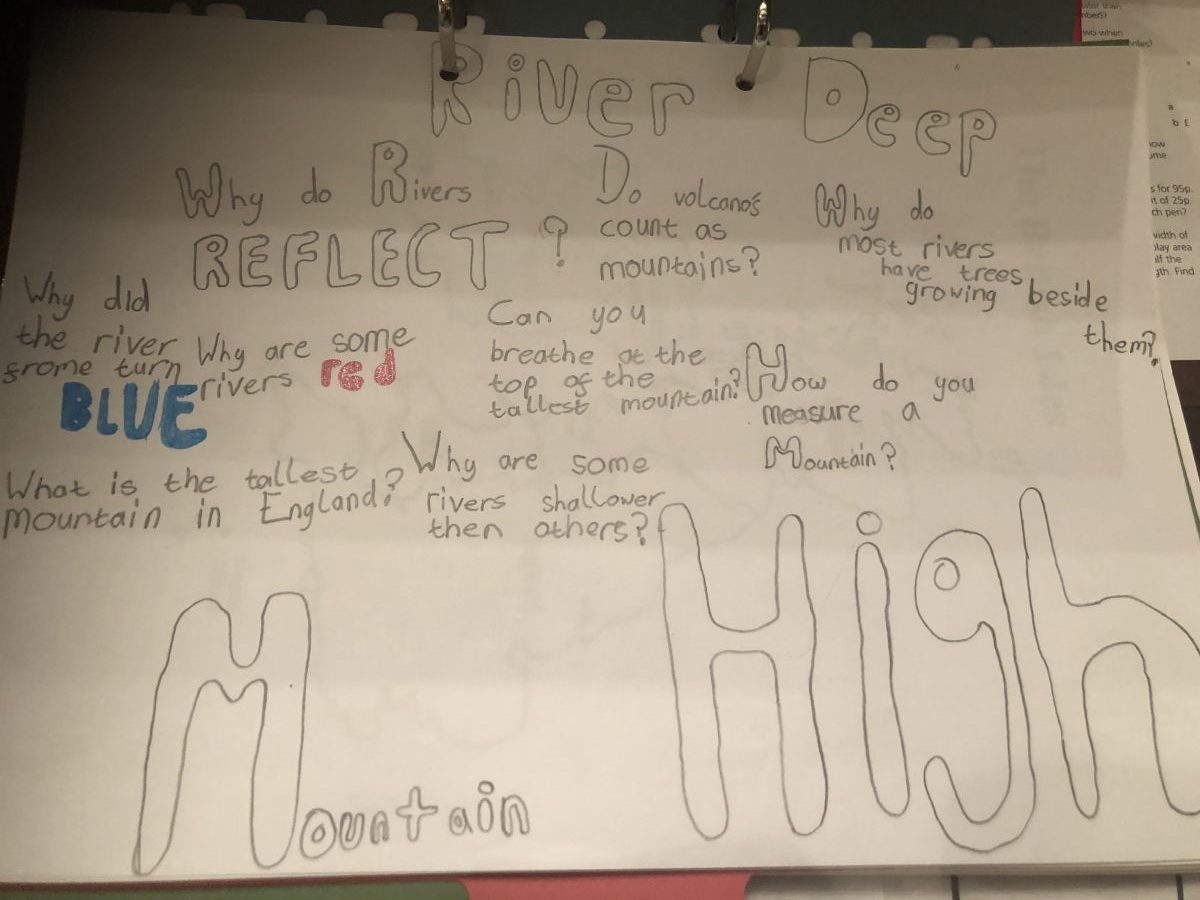 River Deep
Why do Rivers
REFLECT?
Do volcano's
count as
mountains?
Why do
most rivers
have trees
growing beside
them?
Why did
the river
srome turn
BLUE
Why are some
rivers red
Can you
breathe at the
top of the
tallest mountain?
How do you
measure a
Mountain?
What is the tallest
mountain in England?
Why are some
rivers shallower
then others?
Mountain
High
s for 95p.
t of 25p.
ch pen?
width of
lay area
lf the
gth. Find